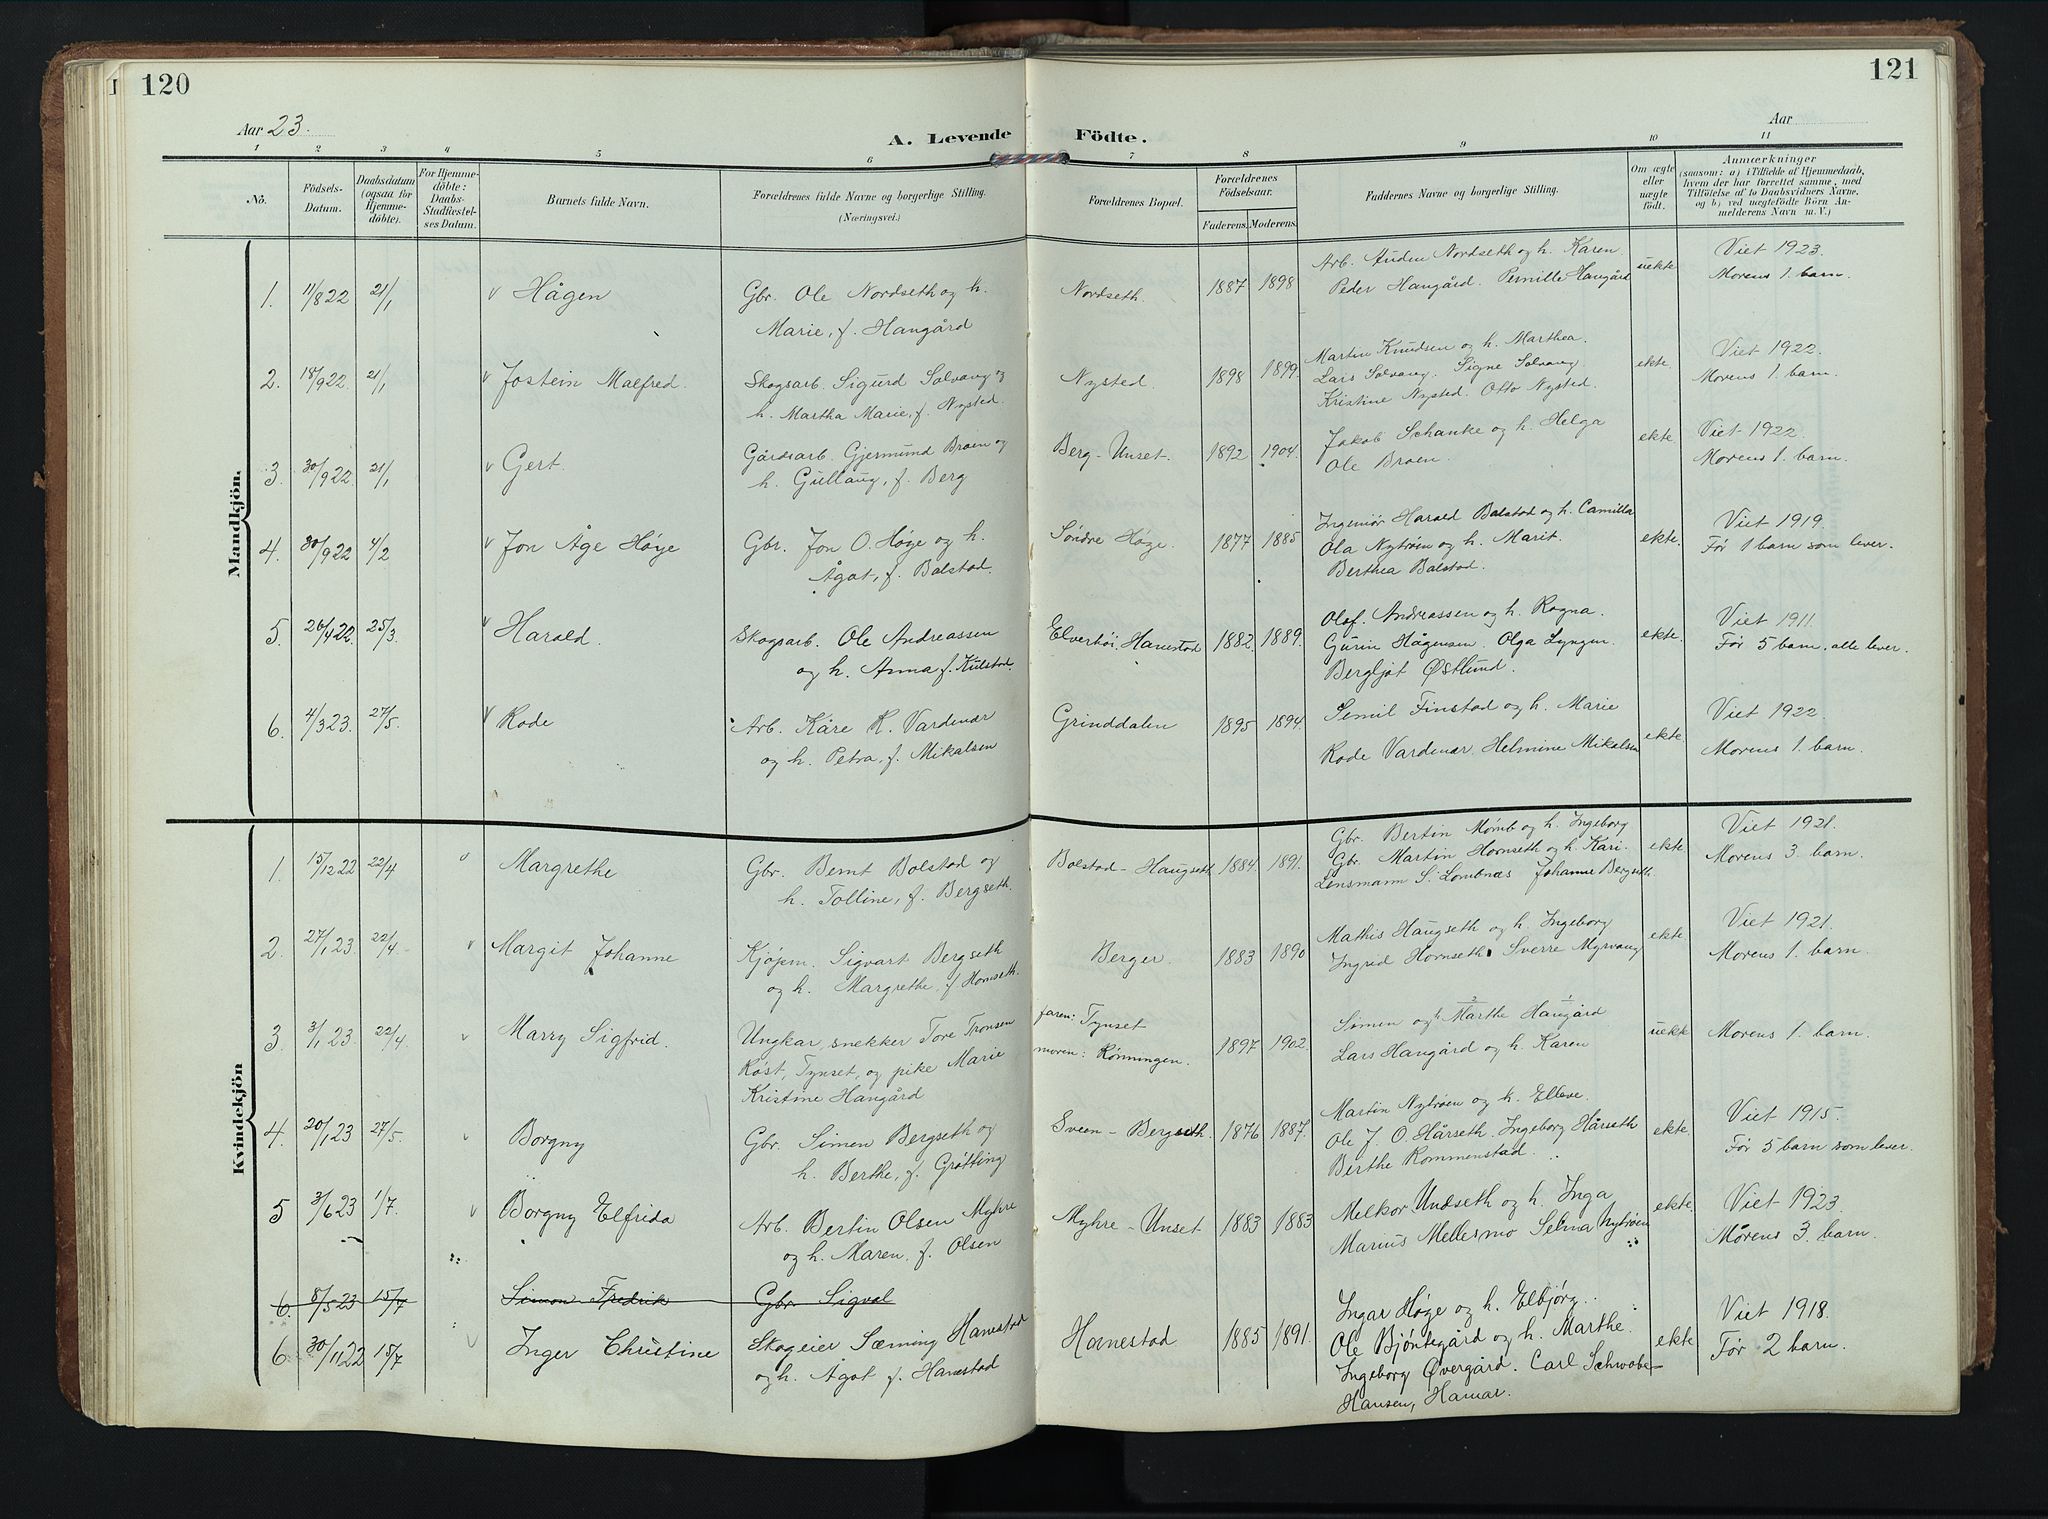 120
121
Aar 23.
A. Levende Födte.
Aar
1 2 3 4 5 6 7 8 9 10 11
No.
Födsels-Datum.
Daabsdatum (ogsaa for Hjemme-döbte).
For Hjemme-döbte: Daabs-Stadfæstel-ses Datum.
Barnets fulde Navn.
Forældrenes fulde Navne og borgerlige Stilling. (Næringsvei.)
Forældrenes Bopæl.
Forældrenes Födselsaar.
Faderens. Moderens.
Faddernes Navne og borgerlige Stilling.
Om ægte eller uægte födt.
Anmærkninger
(saasom: a) i Tilfælde af Hjemmedaab, hvem der har forrettet samme, med Tilföielse af to Daabsvidners Navne, og b) ved uægtefödte Börn Anmelderens Navn m. V.)
Mandkjön.
1. 11/8 22 21/1 v Hågen
Gbr. Ole Nordseth og h.
Marie, f. Haugård
Nordseth. 1887 1898
Arb. Auden Nordseth og h. Karen
Peder Haugård. Pernille Haugård
uekte
Viet 1923.
Morens 1. barn.
2. 18/9 22 21/1 v Jostein Malfred.
Skogsarb. Sigurd Solvang og
h. Martha Marie, f. Nysted.
Nysted. 1898 1899
Martin Knudsen og h. Marthea.
Lars Solvang. Signe Solvang
Kristine Nysted. Otto Nysted.
ekte.
Viet 1922.
Morens 1. barn.
3. 30/9 22 21/1 v Gert.
Gårdsarb. Gjermund Broen og
h. Gullaug, f. Berg
Berg-Unset. 1892 1904.
Jakob Schanke og h. Helga
Ole Broen.
ekte
Viet 1922.
Morens 1. barn.
4. 30/9 22 4/2 v Jon Åge Høye
Gbr. Jon O. Høye og h.
Ågot, f. Bolstad.
Søndre Høye. 1877 1885
Ingeniør Harald Bolstad og h. Camilla
Ola Nytrøen og h. Marit.
Berthea Bolstad.
ekte.
Viet 1919.
Før 1 barn som lever.
5 26/4 22 25/3 v Harald.
Skogsarb. Ole Andreassen
og h. Anna f. Kulstad.
Elverhøi, Hanestad 1882 1889.
Olof. Andreassen og h. Ragna.
Gurin Hågensen. Olga Lyngen.
Bergljot Østlund.
ekte.
Viet 1911.
Før 5 barn, alle lever.
6. 4/3 23. 27/5. v Rode
Arb. Kåre R. Vardenær
og h. Petra, f. Mikalsen
Grinddalen 1895 1894.
Semil Finstad og h. Marie
Rode Vardenær, Helmine Mikalsen
ekte.
Viet 1922.
Morens 1. barn.
Kvindekjön
1. 15/12 22 22/4 v Margrethe
Gbr. Bernt Bolstad og
h. Tolline, f. Bergseth.
Bolstad-Haugseth 1884 1891.
Gbr. Bertin Momb og h. Ingeborg
Gbr. Martin Hornseth og h. Kari.
Lensmann S. Lombnæs Johanne Bergseth.
ekte.
Viet 1921.
Morens 3. barn.
2. 27/1 23. 22/4. v Margit Johanne
Kjøpm. Sigvart Bergseth
og h. Margrethe, f. Hornseth.
Berger. 1883 1890
Mathis Haugseth og h. Ingeborg
Ingrid Hornseth. Sverre Myrvang
ekte.
Viet 1921.
Morens 1. barn.
3. 3/1 23. 22/4. v Marry Sigfrid.
Ungkar, snekker Tore Tronsen
Røst, Tynset, og pike Marie
Kristine Haugård
faren: Tynset
moren: Rønningen. 1897 1902.
Simen og h. Marthe Haugård
Lars Haugård og h. Karen
uekk
Morens 1. barn.
4. 20/1 23 27/5. v Borgny
Gbr. Simen Bergseth og
h. Berthe, f. Grøtting
Sveen-Bergseth. 1876 1887.
Martin Nytrøen og h. Elleve.
Ole J. O. Hårseth. Ingeborg Hårseth
Berthe Rommenstad.
ekte.
Viet 1915.
Før 5 barn som lever.
5 3/6 23 1/7. v Borgny Elfrida
Arb. Bertin Olsen Myhre
og h. Maren, f. Olsen
Myhre-Unset 1883 1883
Melkor Undseth og h. Inga
Marius Mellesmo Selma Nytrøen
ekte.
Viet 1923.
Morens 3. barn.
6. 8/5 23 15/7 Simon Fredrik Gbr. Sigval
6 30/11 22 15/7 v Inger Christine
Skogeier Sæming Hanestad
og h. Ågot f. Hanestad
Hanestad 1885 1891.
Ingar Høye og h. Elbjørg.
Ole Bjøntegård og h. Marthe.
Ingeborg Øvergård. Carl Schwabe-
Hansen, Hamar.
ekte
Viet 1918.
Før 2 barn.